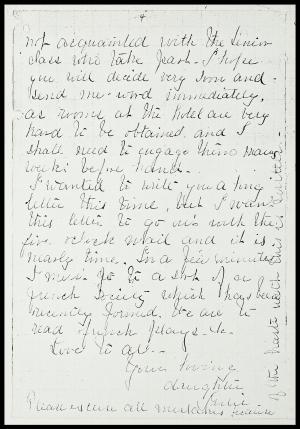 4
not acquainted with the Senior
class who take part. I hope
you will decide very soon and
send me word immediately,
as rooms at the hotel are very
hard to be obtained, and I
shall need to engage them many
weeks before hand.
I wanted to write you a long
letter this time, but I want
this letter to go in with the
five o'clock mail and it is
nearly time. In a few minutes
I must go to a sort of a
French Society which has been
recently formed. We are to
read French plays &c.
Love to all.
Your loving
daughter
Please excuse all mistakes because
of the haste with this is written.